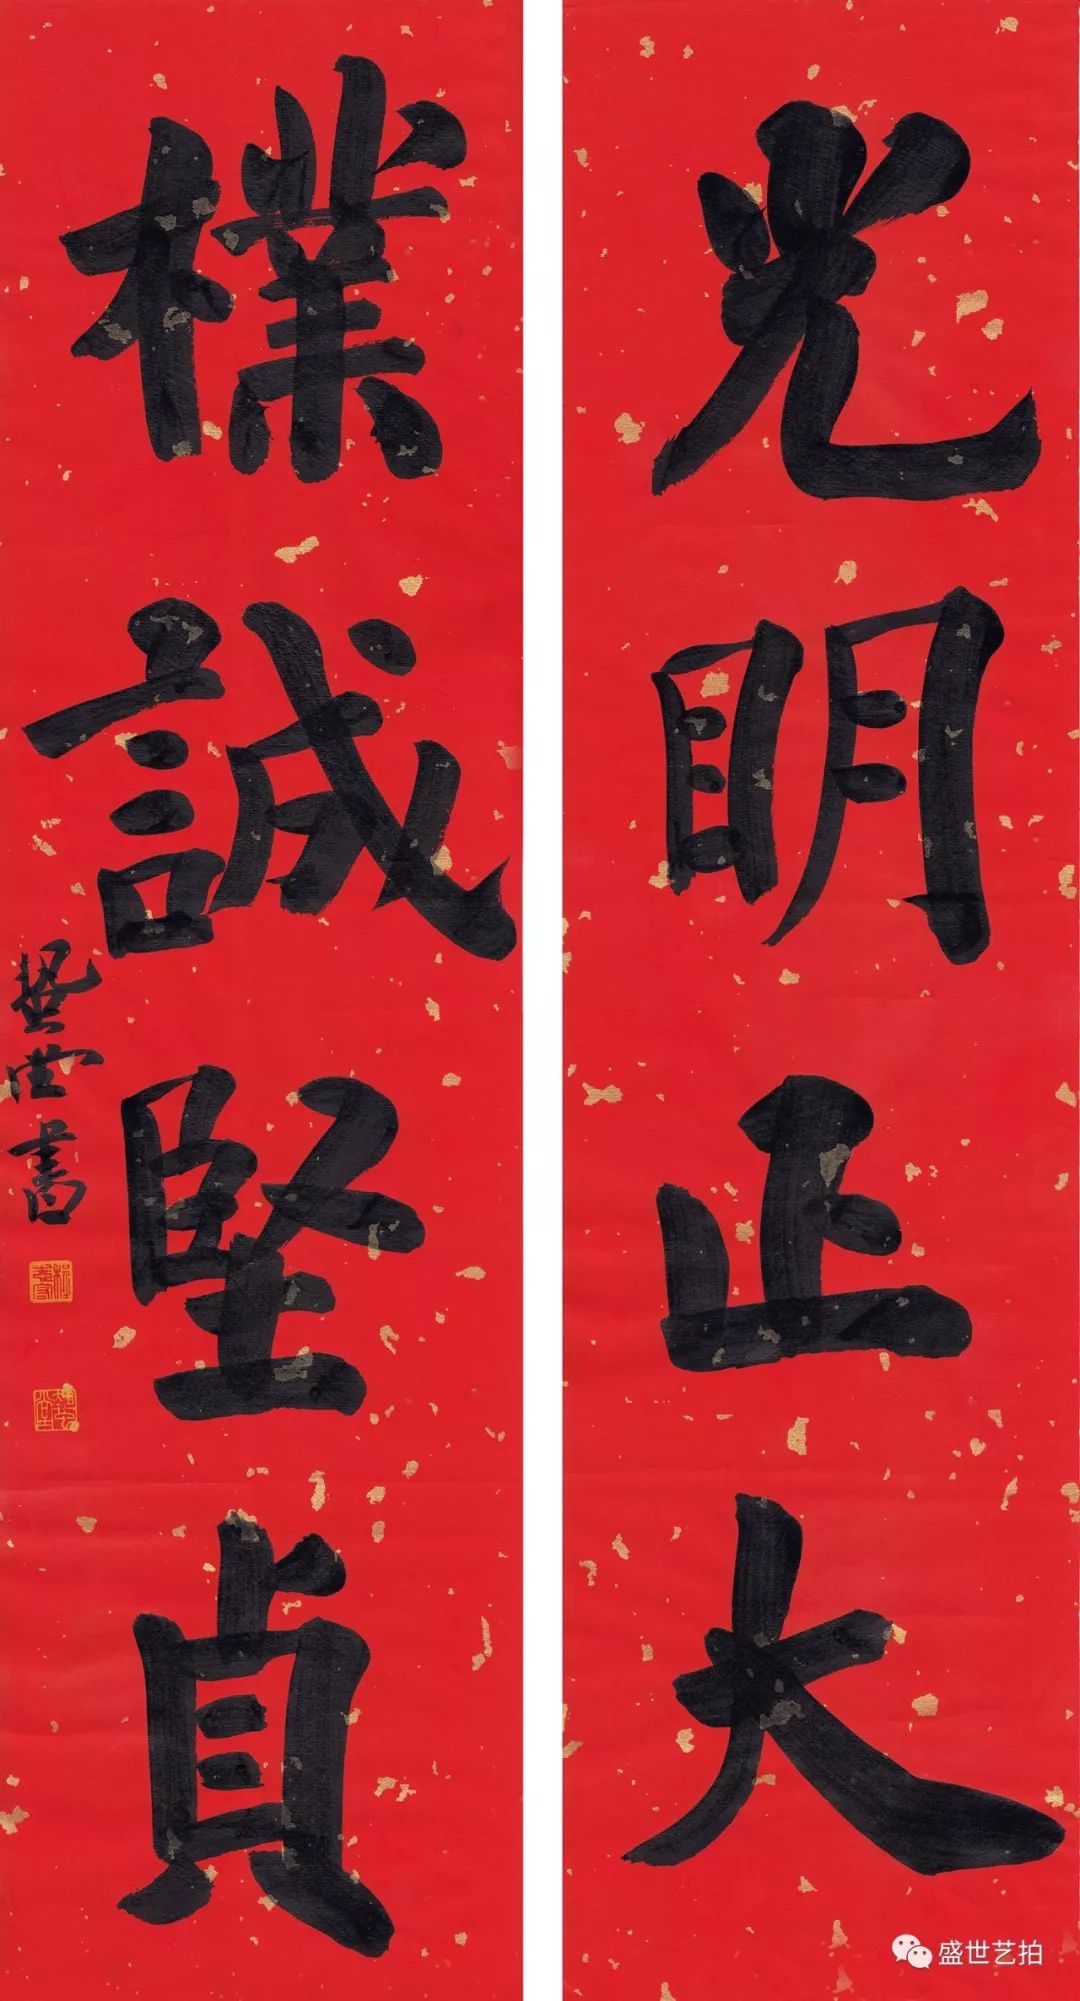 光眀正大
樸誠堅貞
堂書
盛世艺拍